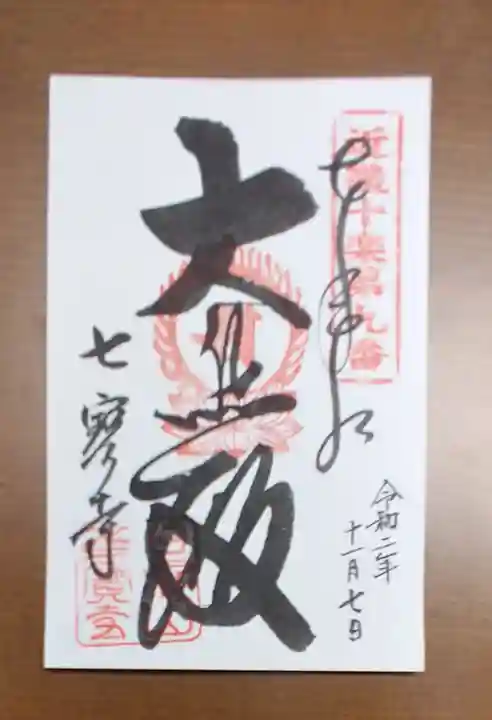 近畿十楽第九番
奉拝
令和二年
十一月七日
大悲殿
七寳寺